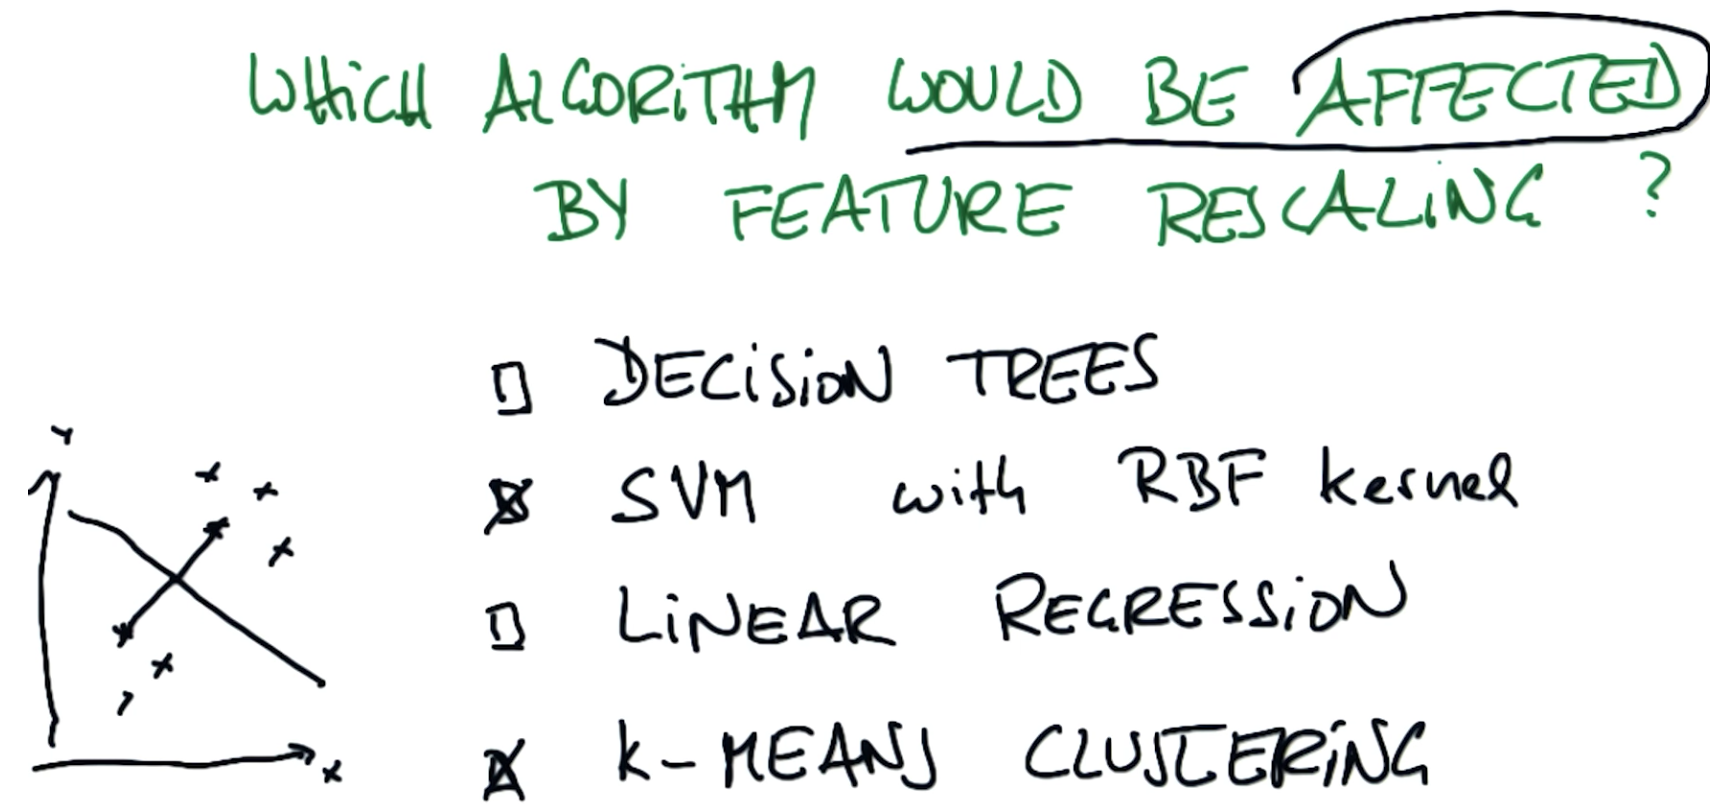 WHICH ALGORITHM WOULD BE AFFECTED
BY FEATURE RESCALING ?
DECISION TREES
SVM with RBF kernel
LINEAR REGRESSION
K-MEANS CLUSTERING
Y
X